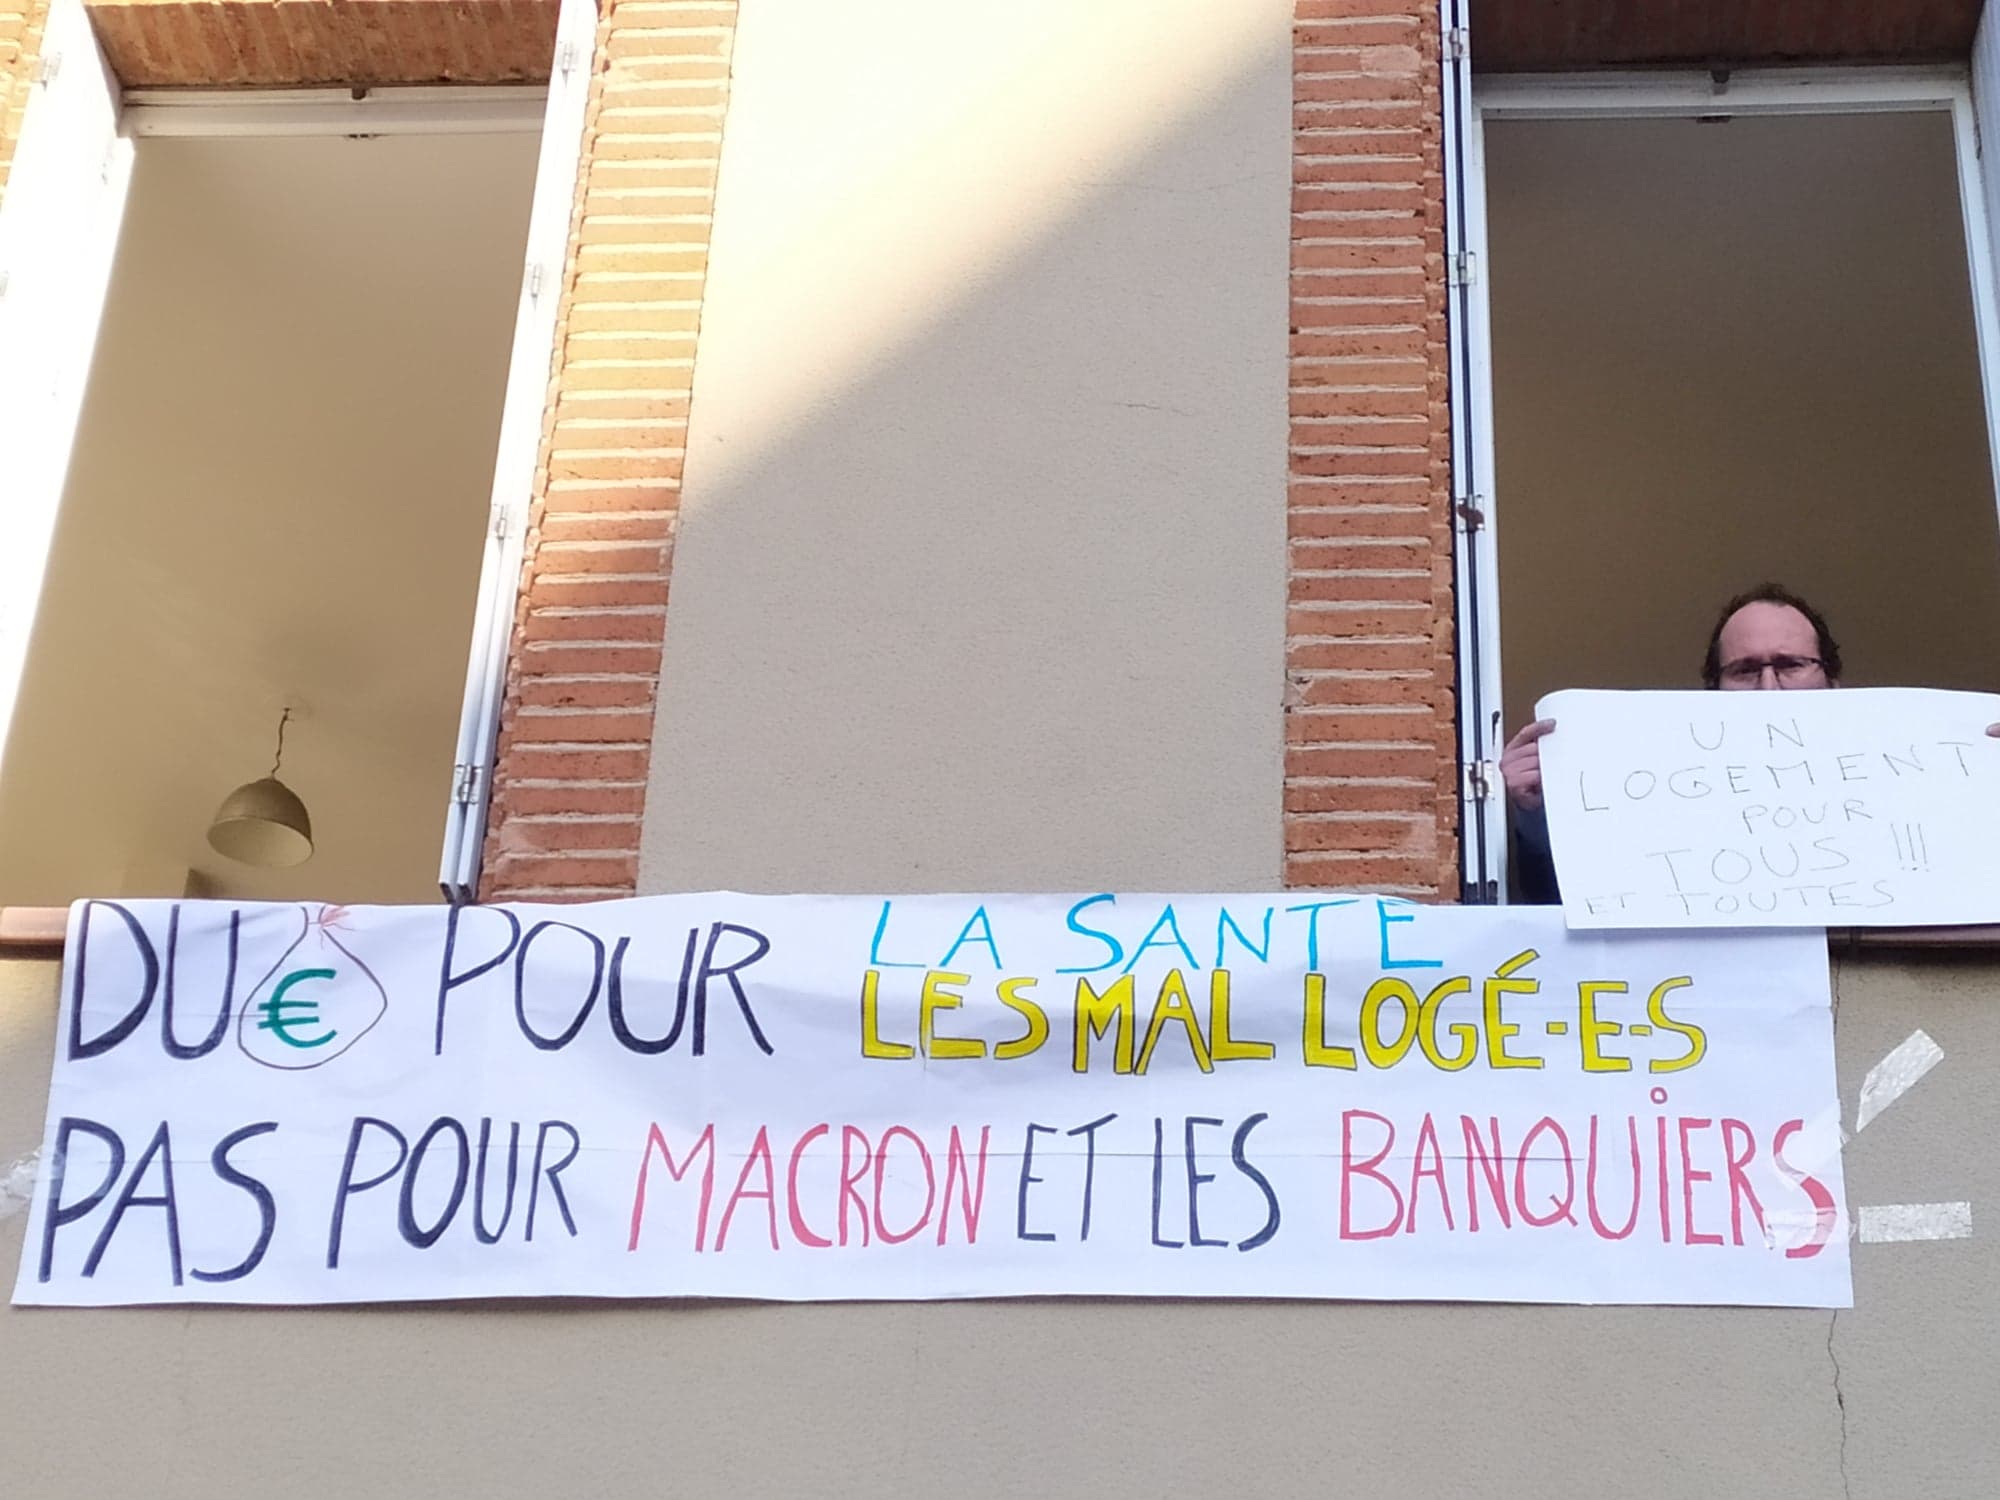 UN
LOGEMENT
POUR
TOUS !!!
ET TOUTES
DU € POUR LA SANTÉ
LES MAL LOGÉ-E-S
PAS POUR MACRON ET LES BANQUIERS